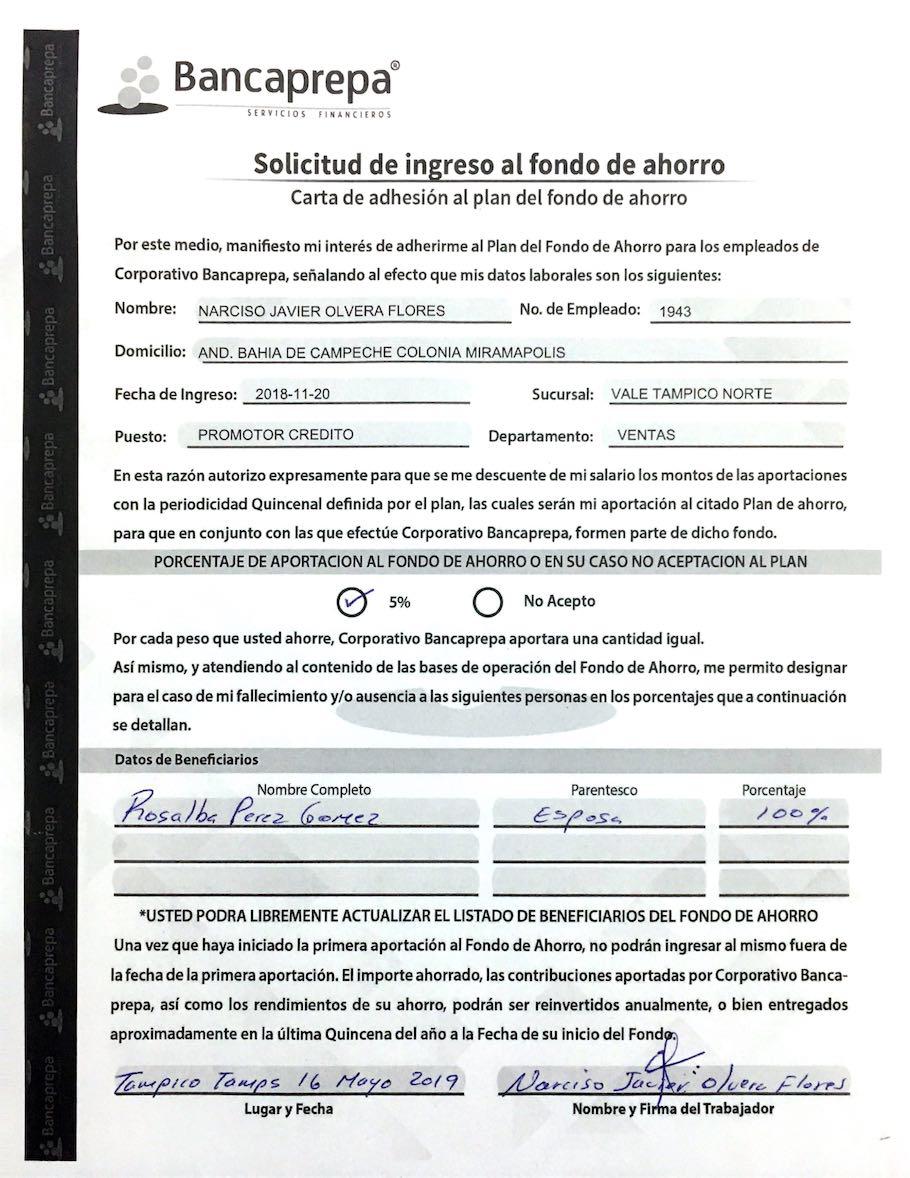 Bancaprepa®
SERVICIOS FINANCIEROS
Solicitud de ingreso al fondo de ahorro
Carta de adhesión al plan del fondo de ahorro
Por este medio, manifiesto mi interés de adherirme al Plan del Fondo de Ahorro para los empleados de
Corporativo Bancaprepa, señalando al efecto que mis datos laborales son los siguientes:
Nombre: NARCISO JAVIER OLVERA FLORES No. de Empleado: 1943
Domicilio: AND. BAHIA DE CAMPECHE COLONIA MIRAMAPOLIS
Fecha de Ingreso: 2018-11-20 Sucursal: VALE TAMPICO NORTE
Puesto: PROMOTOR CREDITO Departamento: VENTAS
En esta razón autorizo expresamente para que se me descuente de mi salario los montos de las aportaciones
con la periodicidad Quincenal definida por el plan, las cuales serán mi aportación al citado Plan de ahorro,
para que en conjunto con las que efectúe Corporativo Bancaprepa, formen parte de dicho fondo.
PORCENTAJE DE APORTACION AL FONDO DE AHORRO O EN SU CASO NO ACEPTACION AL PLAN
5% No Acepto
Por cada peso que usted ahorre, Corporativo Bancaprepa aportara una cantidad igual.
Así mismo, y atendiendo al contenido de las bases de operación del Fondo de Ahorro, me permito designar
para el caso de mi fallecimiento y/o ausencia a las siguientes personas en los porcentajes que a continuación
se detallan.
Datos de Beneficiarios
Nombre Completo Parentesco Porcentaje
Rosalba Perez Gomez Esposa 100%
*USTED PODRA LIBREMENTE ACTUALIZAR EL LISTADO DE BENEFICIARIOS DEL FONDO DE AHORRO
Una vez que haya iniciado la primera aportación al Fondo de Ahorro, no podrán ingresar al mismo fuera de
la fecha de la primera aportación. El importe ahorrado, las contribuciones aportadas por Corporativo Banca-
prepa, así como los rendimientos de su ahorro, podrán ser reinvertidos anualmente, o bien entregados
aproximadamente en la última Quincena del año a la Fecha de su inicio del Fondo.
Tampico Tamps 16 Mayo 2019 Narciso Javier Olvera Flores
Lugar y Fecha Nombre y Firma del Trabajador
Bancaprepa
Bancaprepa
Bancaprepa
Bancaprepa
Bancaprepa
Bancaprepa
Bancaprepa
Bancaprepa
Bancaprepa